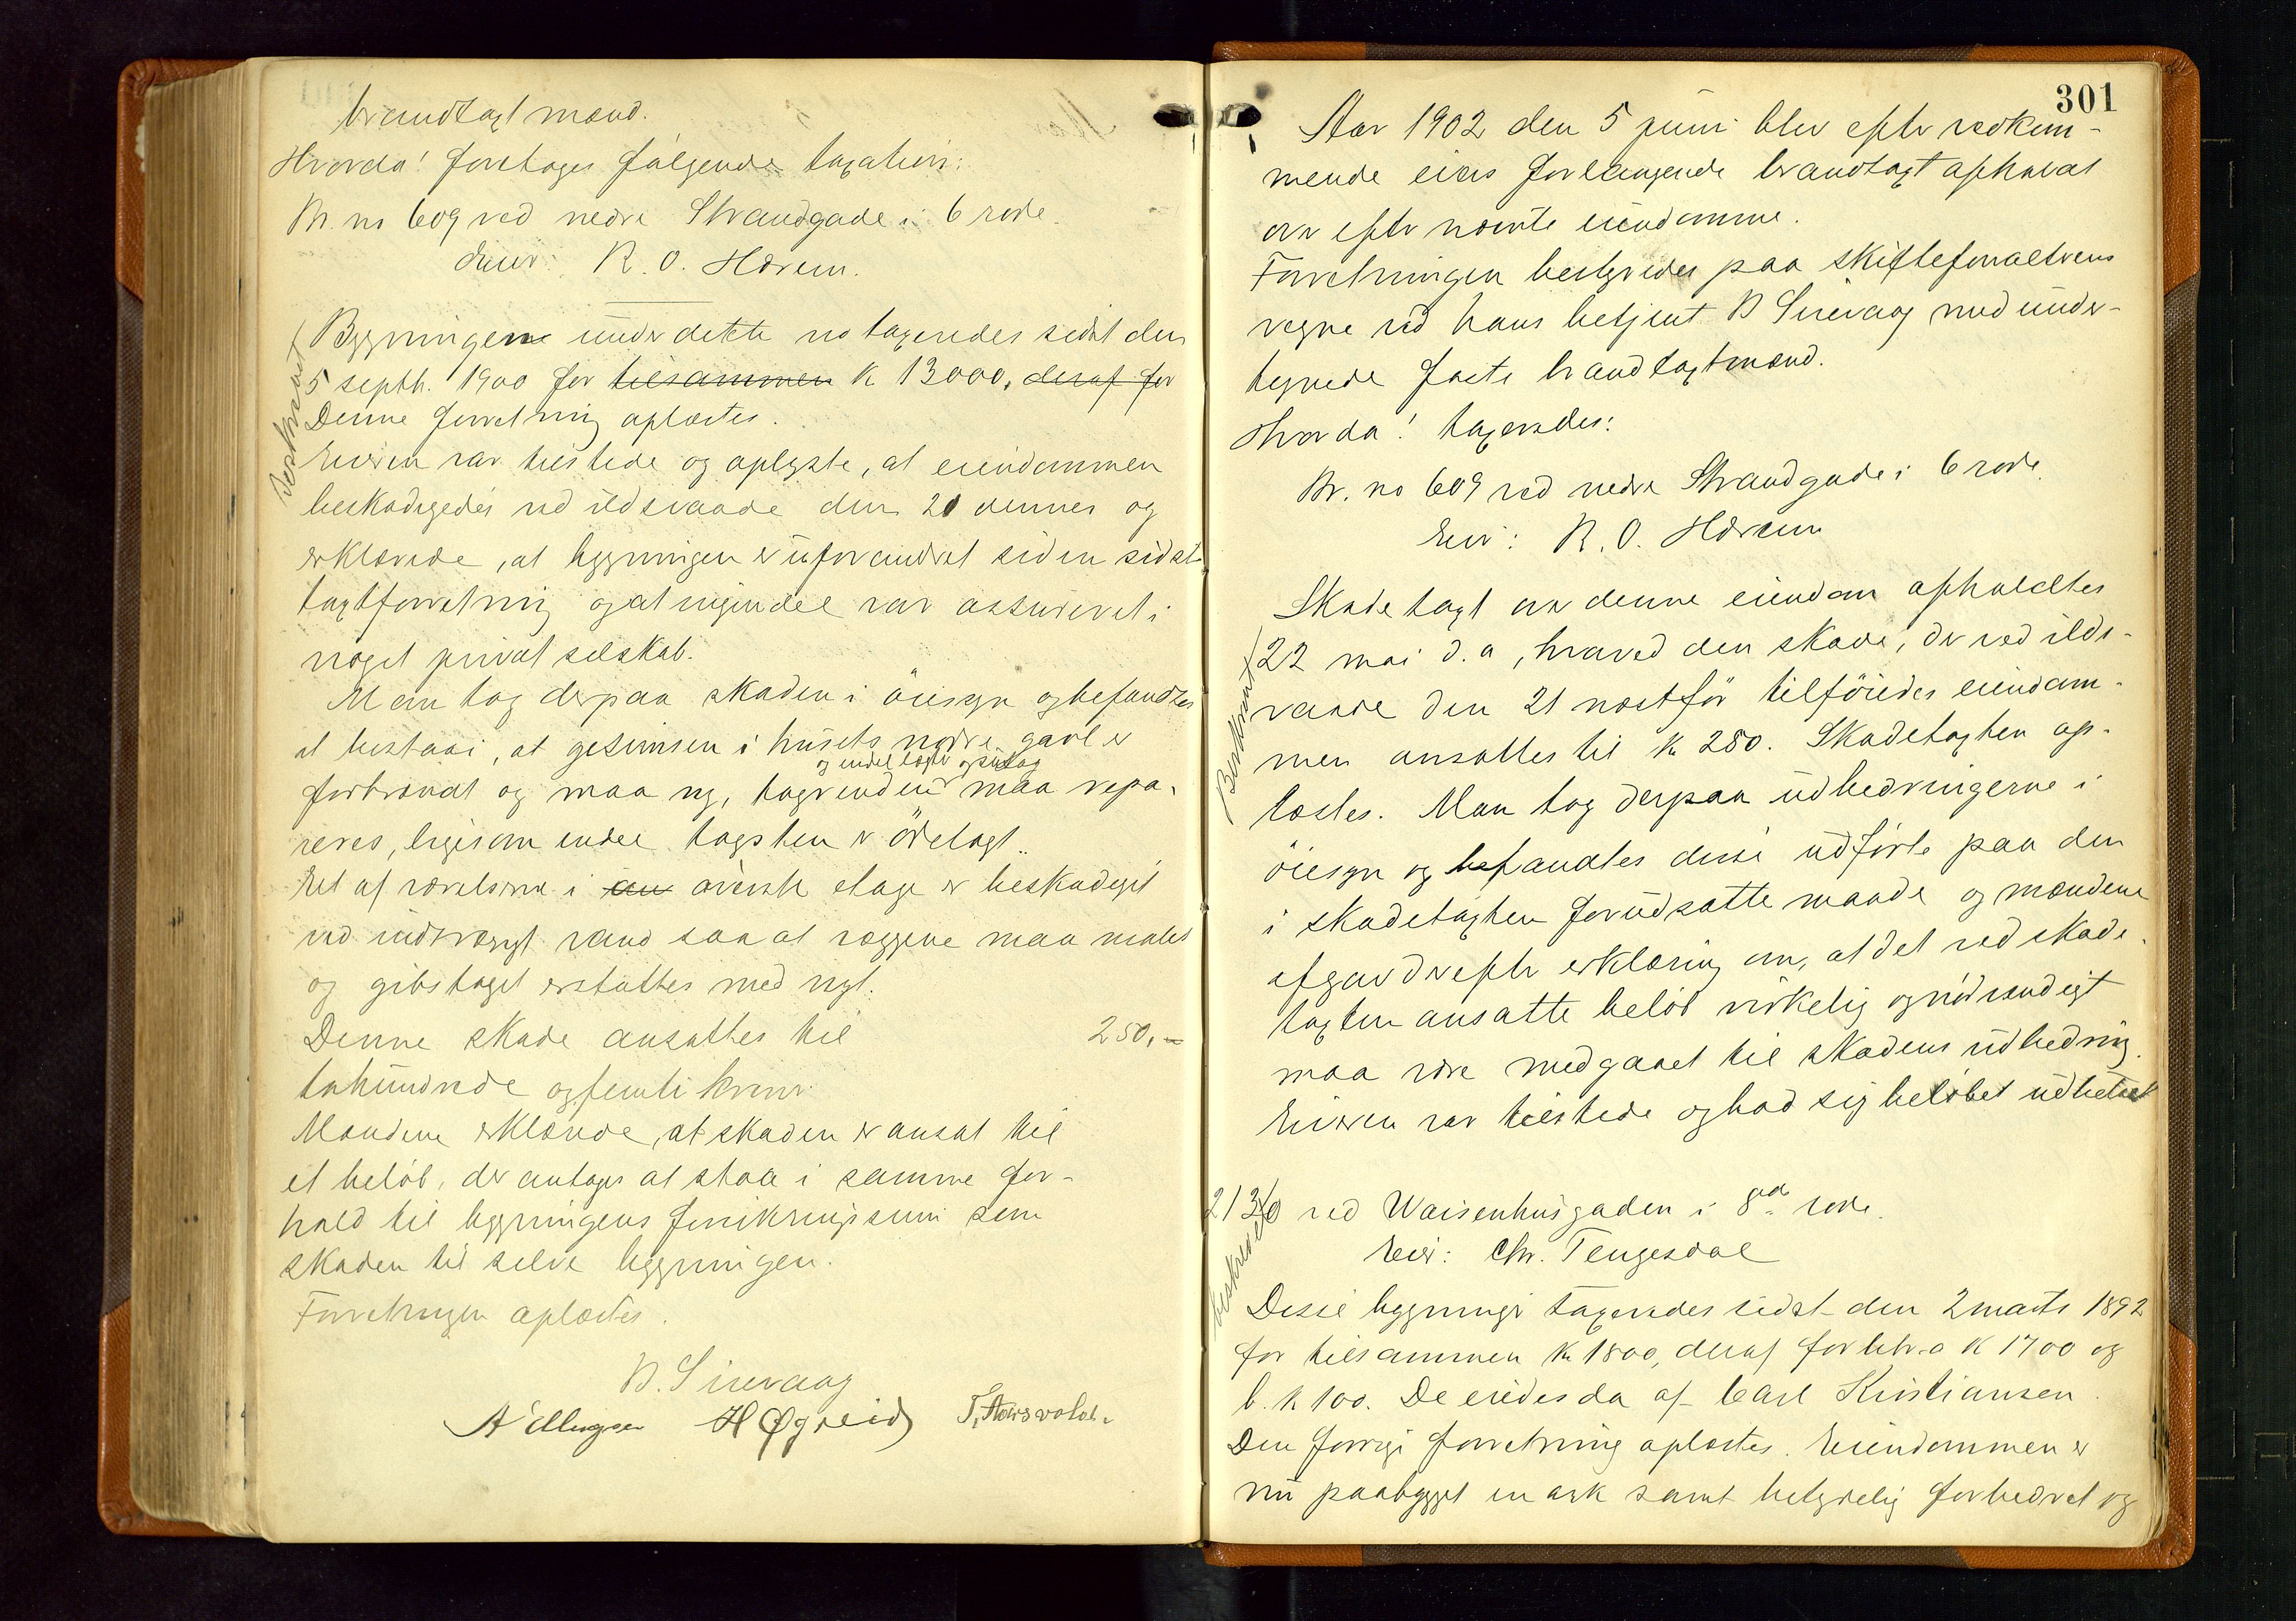 brandtaxtmænd.
Hvorda! foretoges følgende taxation:
Br. no 609 ved nedre Strandgade i 6 rode.
Eier: R. O. Hærem.
Beskrevet
Bygningen under dette no taxeredes sidst den
5 septb. 1900 for tilsammen k 13000, deraf for
Denne forretning oplæstes.
Eieren var tilstede og oplyste, at eiendommen
beskadigedes ved ildsvaade den 21 dennes og
erklærede, at bygningen er uforandret siden sidste
taxtforretning og at ingendel var assureret i
noget privat selskab.
Man tog derpaa skaden i öiesyn og befandtes
at bestaa i, at gesimsen i husets nordre gavl er
og endel lægter og sutag
forbrændt og maa ny, tagrenden maa repa-
reres, ligesom endel tagsten er ödelagt.
Et af værelserne i en överste etage er beskadiget
ved indtrængt vand saa at væggene maa males
og gibstaget erstattes med nyt.
Denne skade ansattes til 250,-
tohundrede og femti kroner
Mændene erklærede, at skaden er ansat til
et belöb, der antages at staa i samme for-
hold til bygningens forsikringssum som
skaden til selve bygningen.
Forretningen oplæstes.
B. Sirevaag
A Ellingsen H Øgreid T, Aarsvold.
301
Aar 1902 den 5 juni blev efter vedkom-
mende eiers forlangende brandtaxt afholdt
over efter nævnte eiendomme.
Forretningen bestyredes paa skifteforvalterens
vegne ved hans betjent B Sirevaag med under-
tegnede faste brandtaxtmænd.
Hvorda! taxeredes:
Br. no 609 ved nedre Strandgade i 6 rode.
Eier: R. O. Hærem
Skadetaxt over denne eiendom afholdtes
22 mai d. a, hvorved den skade, der ved ilds-
Beskrevet
vaade den 21 næstför tilföiedes eiendom-
men ansattes til k 250. Skadetaxten op-
læstes. Man tog derpaa udbedringerne i
öiesyn og befandtes disse udförte paa den
i skadetaxten forudsatte maade og mændene
afgav derefter erklæring om, at det ved skade-
taxten ansatte belöb virkelig og nödvendigt
maa være medgaaet til skadens udbedring.
Eieren var tilstede og bad sig belöbet udbetalt
213/0 ved Waisenhusgaden i 8de rode.
Eier: Chr. Tengesdal
beskrevet
Disse bygninger taxeredes sidst den 2 marts 1892
for tilsammen k 1800, deraf for litr. a k 1700 og
b. k 100. De eiedes da af Carl Kristiansen.
Den forrige forretning oplæstes. Eiendommen er
nu paabygget en ark samt betydelig forbedret og